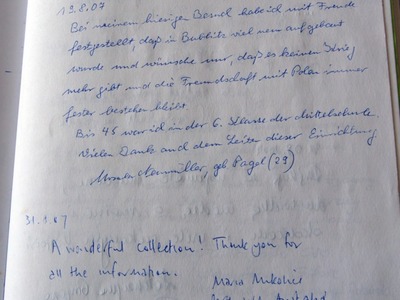 19.8.07
Bei meinem hiesigen Besuch habe ich mit Freude
festgestellt, daß in Bublitz viel neu aufgebaut
wurde und wünsche mir, daß es keinen Krieg
mehr gibt und die Freundschaft mit Polen immer
fester bestehen bleibt.
Bis 45 war ich in der 6. Klasse der Mittelschule.
Vielen Dank auch dem Leiter dieser Einrichtung
geb Pagel (29)
31.8.07
A wonderful collection! Thank you for
all the information.
Maria